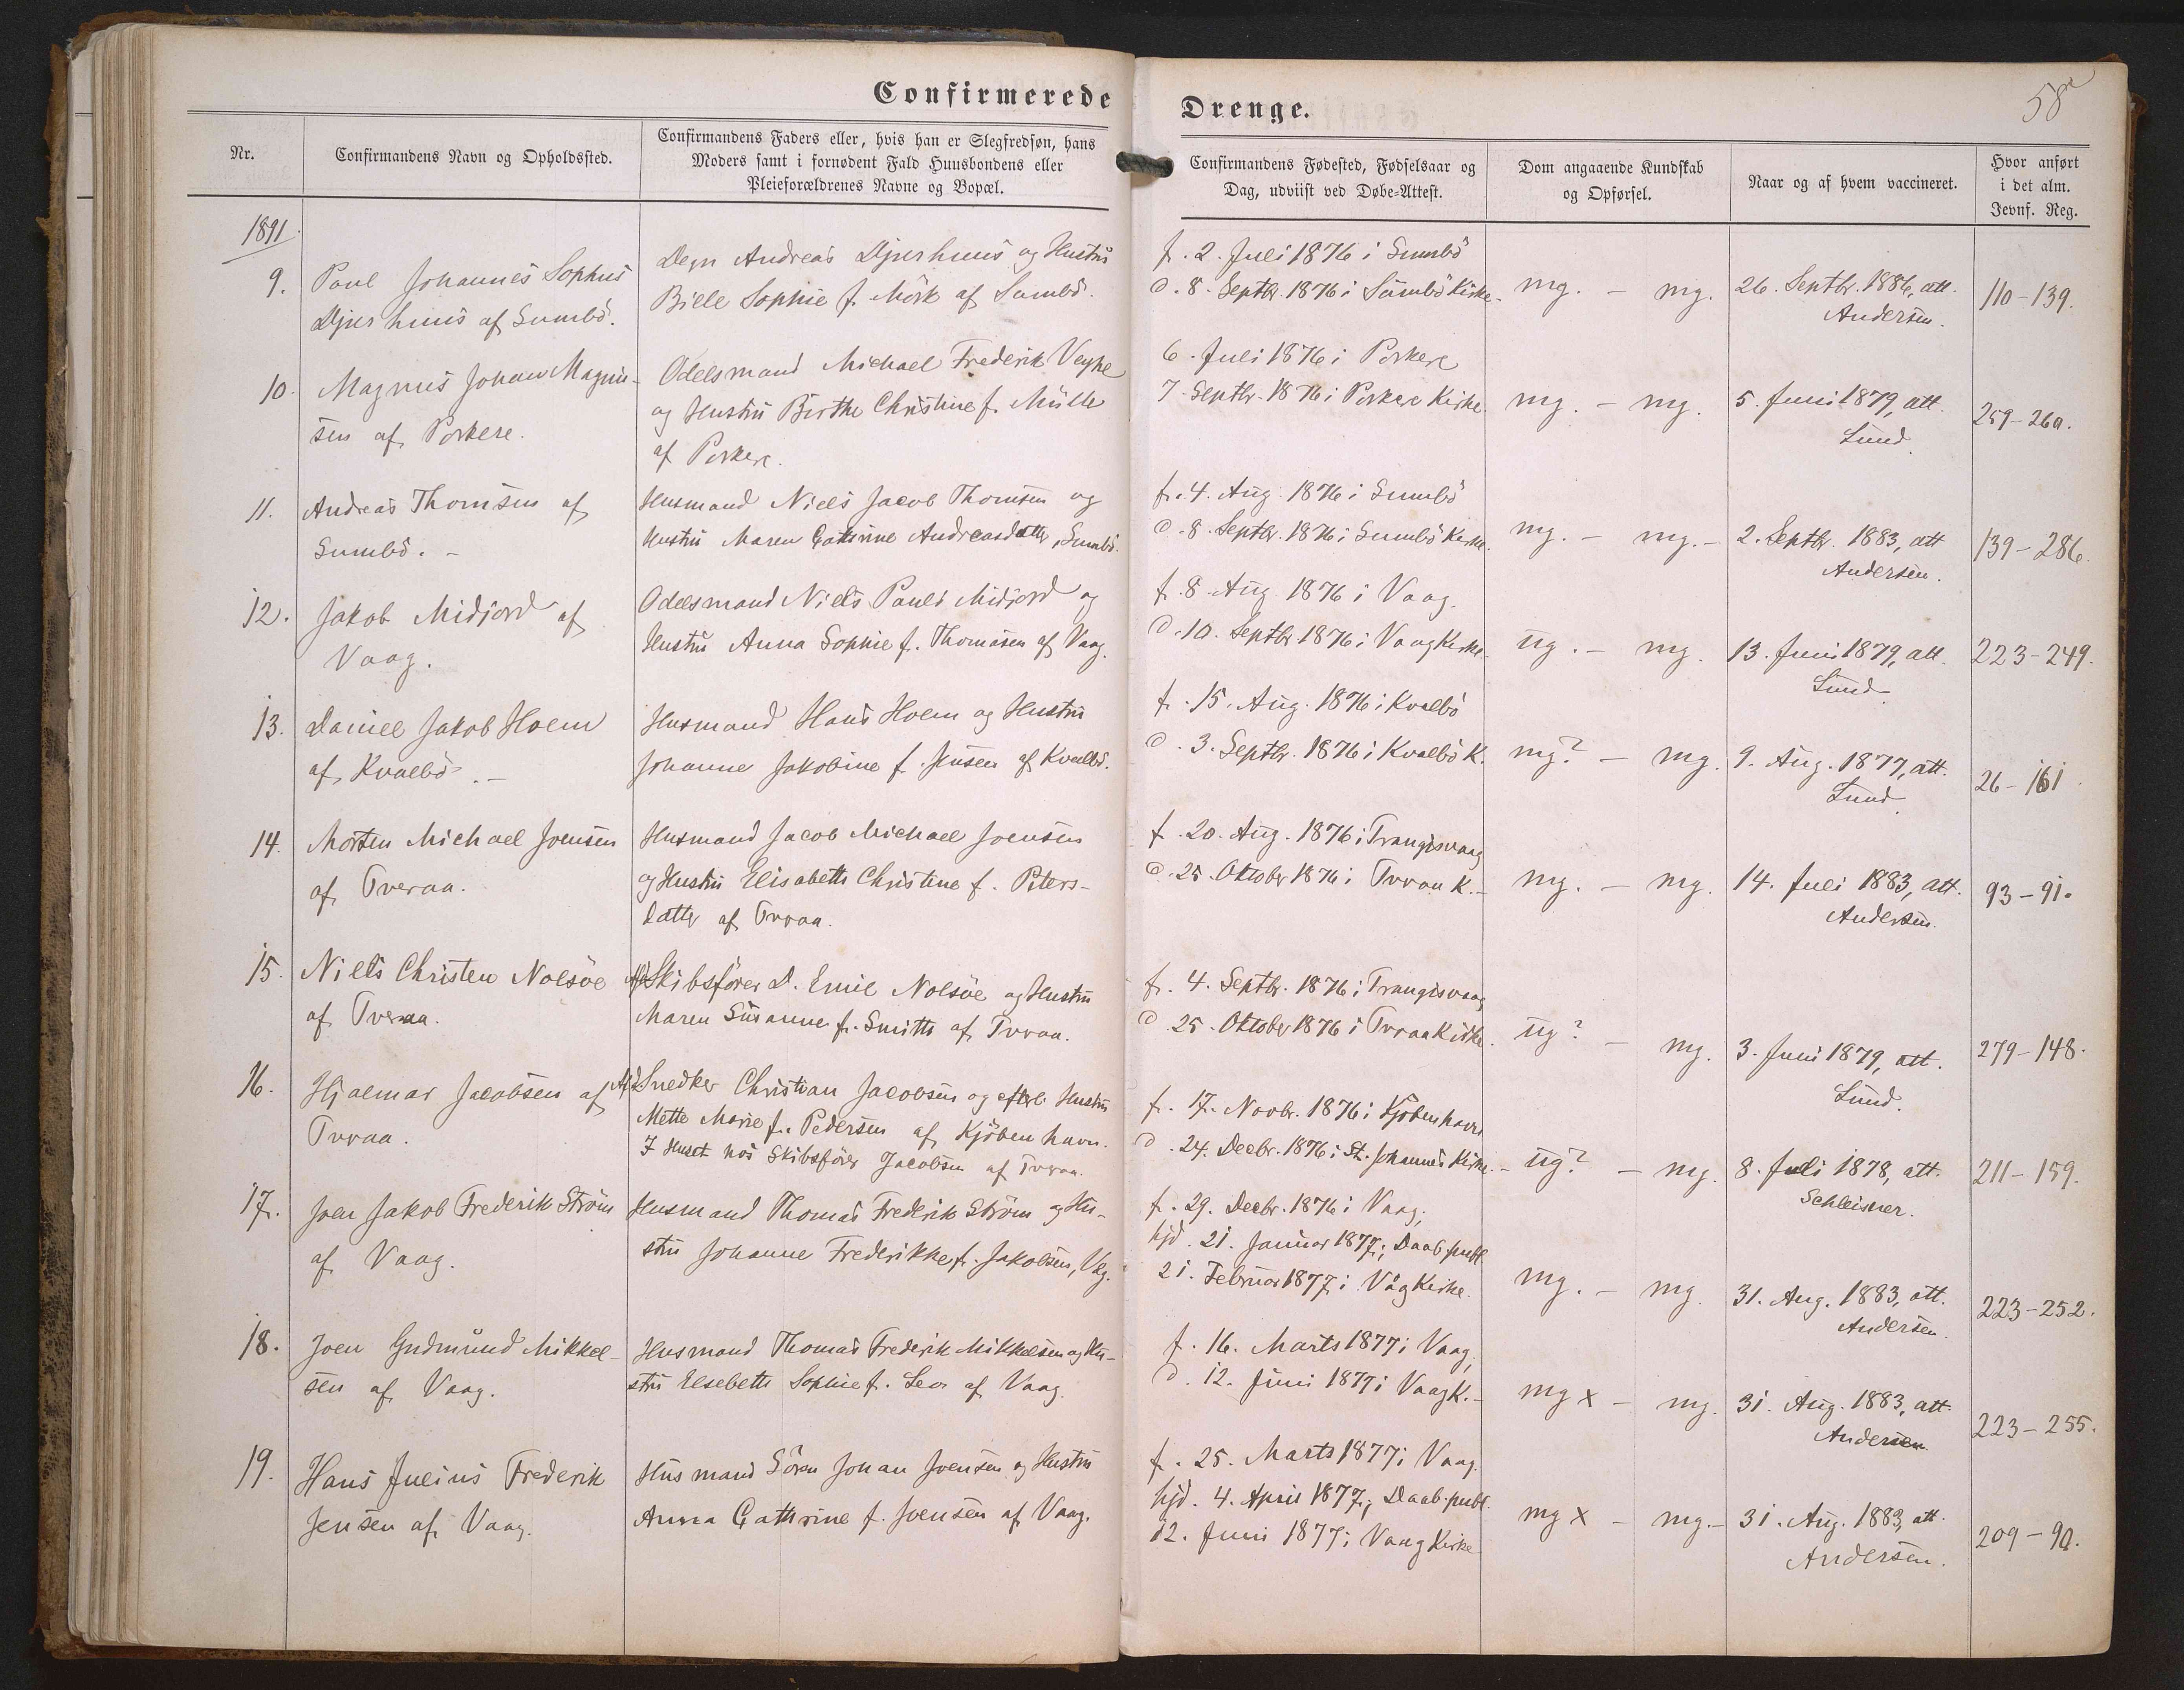 Confirmerede Drenge.
58
Nr.
Confirmandens Navn og Opholdssted.
Confirmandens Faders eller, hvis han er Slegfredsøn, hans
Moders samt i fornødent Fald Huusbondens eller
Pleieforældrenes Navne og Bopæl.
Confirmandens Fødested, Fødselsaar og
Dag, udviist ved Døbe-Attest.
Dom angaaende Kundskab
og Opførsel.
Naar og af hvem vaccineret.
Hvor anført
i det alm.
Jevnf. Reg.
1891
9.
Poul Johannes Sophus
Djurhuus af Sumbö.
Degn Andreas Djurhuus og Hustru
Bille Sophie f. Mörk af Sumbö.
f. 2. Juli 1876 i Sumbö
d. 8. Septbr. 1876 i Sumbö Kirke.
mg. – mg.
26. Septbr. 1886, att.
Andersen.
110–139.
10.
Magnus Johan Magnus-
sen af Porkere.
Odelsmand Michael Frederik Veyhe
og Hustru Birthe Christine f. Müller
af Porkere.
6. Juli 1876 i Porkere
7. Septbr. 1876 i Porkere Kirke.
mg. – mg.
5. Juni 1879, att.
Lund.
259–260.
11.
Andreas Thomsen af
Sumbö. –
Husmand Niels Jacob Thomsen og
Hustru Maren Cathrine Andreasdatter, Sumbö.
f. 4. Aug. 1876 i Sumbö
d. 8. Septbr. 1876 i Sumbö Kirke.
mg. – mg. –
2. Septbr. 1883, att
Andersen.
139–286.
12.
Jakob Midjord af
Vaag.
Odelsmand Niels Pauli Midjord og
Hustru Anna Sophie f. Thomasen af Vaag.
f. 8. Aug. 1876 i Vaag.
d. 10. Septbr. 1876 i Vaag Kirke.
ug. – mg.
13. Juni 1879, att.
Lund
223–249.
13.
Daniel Jakob Holm
af Kvalbö. –
Husmand Hans Holm og Hustru
Johanne Jakobine f. Jensen af Kvalbö.
f. 15. Aug. 1876 i Kvalbö
d. 3. Septbr. 1876 i Kvalbö K.
mg? – mg.
9. Aug. 1877, att.
Lund
26–161
14.
Morten Michael Joensen
af Tveraa.
Husmand Jacob Michael Joensen
og Hustru Elisabeth Christine f. Peters-
datter af Tvraa.
f. 20. Aug. 1876 i Trangisvaag
d. 25. Oktober 1876 i Tvraa K. –
mg. – mg.
14. Juli 1883, att.
Andersen.
93–91.
15.
Niels Christen Nolsöe
af Tveraa.
Afd. Skibsförer D. Emil Nolsöe og Hustru
Maren Susanne f. Smith af Tvraa.
f. 4. Septbr. 1876 i Trangisvaag
d. 25. Oktober 1876 i Tvraa Kirke.
ug? – mg.
3. Juni 1879, att.
Lund.
279–148.
16.
Hjalmar Jacobsen af
Tvraa.
Afd. Snedker Christian Jacobsen og efterl. Hustru
Mette Marie f. Pedersen af Kjöbenhavn.
I Huset hos Skibsförer Jacobsen af Tvraa.
f. 17. Novbr. 1876 i Kjöbenhavn
d. 24. Decbr. 1876 i St. Johannes Kirke. –
ug? – mg.
8. Juli 1878, att.
Schleisner.
211–159.
17.
Joen Jakob Frederik Ström
af Vaag.
Husmand Thomas Frederik Ström og Hu-
stru Johanne Frederikke f. Jakobsen, Vag.
f. 29. Decbr. 1876 i Vaag;
hjd. 21. Januar 1877; Daab publ
21. Februar 1877 i Våg Kirke.
mg. – mg.
31. Aug. 1883, att.
Andersen.
223–252.
18.
Joen Gudmund Mikkel-
sen af Vaag.
Husmand Thomas Frederik Mikkelsen og Hu-
stru Elsebeth Sophie f. Leo af Vaag.
f. 16. Marts 1877 i Vaag,
d. 12. Juni 1877 i Vaag K. –
mg x – mg.
31. Aug. 1883, att.
Andersen
223–255.
19.
Hans Julius Frederik
Jensen af Vaag.
Husmand Sören Johan Joensen og Hustru
Anna Cathrine f. Joensen af Vaag.
f. 25. Marts 1877 i Vaag.
hjd. 4. April 1877; Daab publ.
12. Juni 1877 i Vaag Kirke
mg x – mg. –
31. Aug. 1883, att.
Andersen.
209–90.